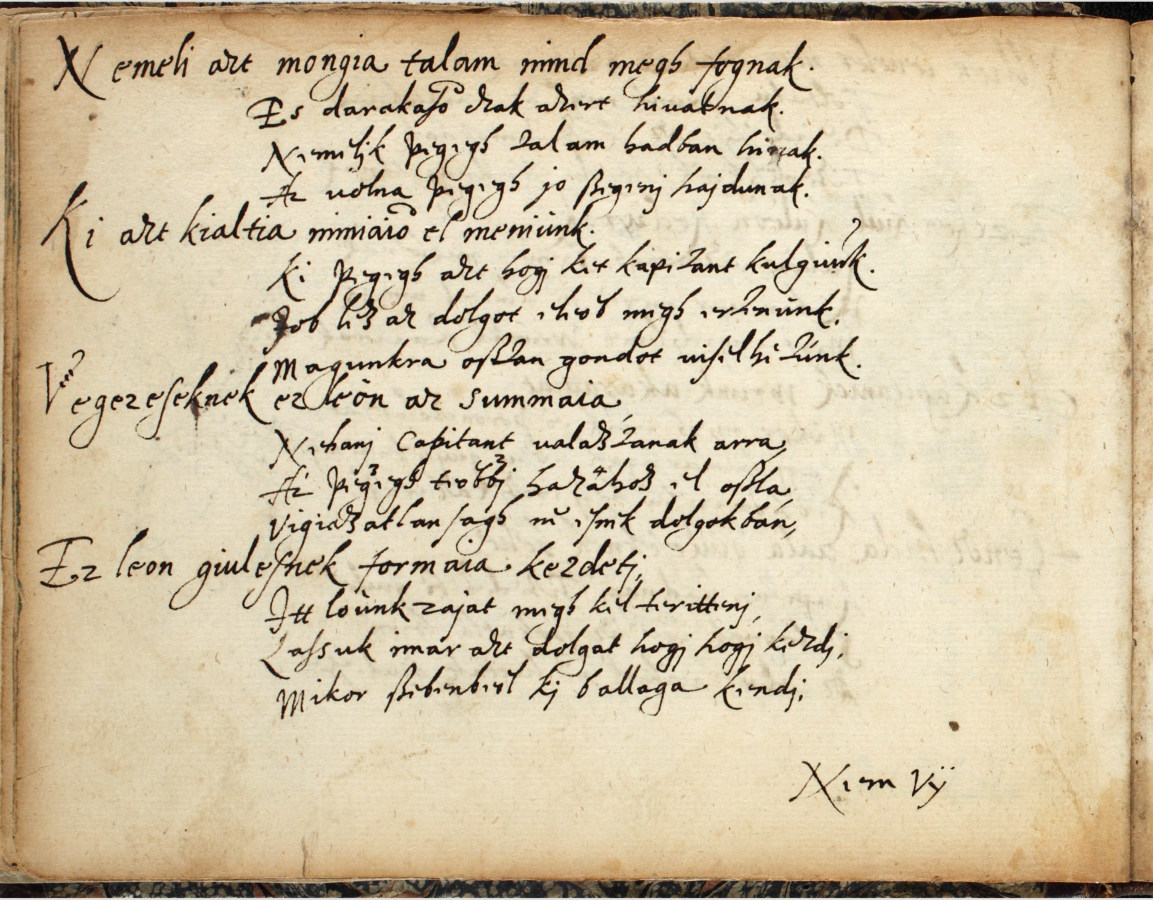 Nemeli azt mongia talam mind megh fognak.
Es darakaso czak azert hivatnak.
Niemeljk penigh talam hadban hinak.
Az volna penigh jo szegenj hajdunak.
Ki azt kialtia mimiaio el meniünk.
Ki penigh azt hogj ket kapitant kulgiunk.
Job lesz az dolgot eleob megh ertenünk.
Magunkra osztan gondot viselhetünk.
Vegezeseknek ez leön az summaia,
Nehanj Capitant valasztanak arra,
Az penigh teobbj hazahosz el oszla,
Vigiazatlansagh nē esnek dolgokban,
Ez leon giulesnek formaia kezdetj,
Itt lounk zajat megh kel teritteni,
Lassuk imar azt dolgat hogj hogj kezdj,
Mikor szebenbeol kj ballaga kendj,
Niem Vÿ